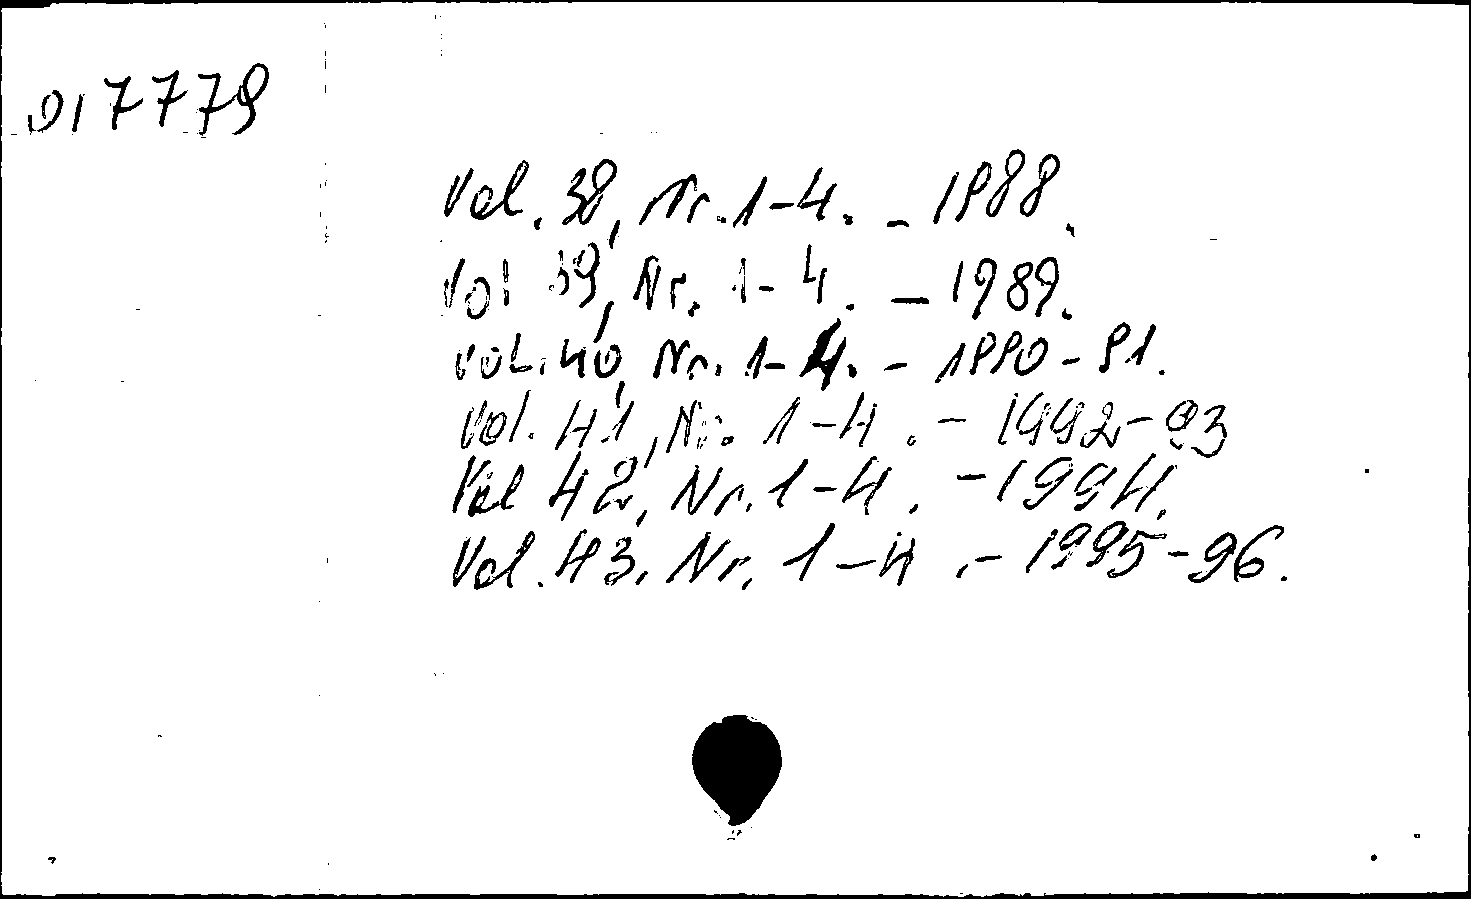 017779
Vol. 38, Nr. 1-4. - 1988.
Vol 39, Nr. 1-4. - 1989.
Vol. 40, Nr. 1-4. - 1990-91.
Vol. 41, Nr. 1-4. - 1992-93
Vol 42, Nr. 1-4. - 1994.
Vol. 43. Nr. 1-4 .- 1995-96.